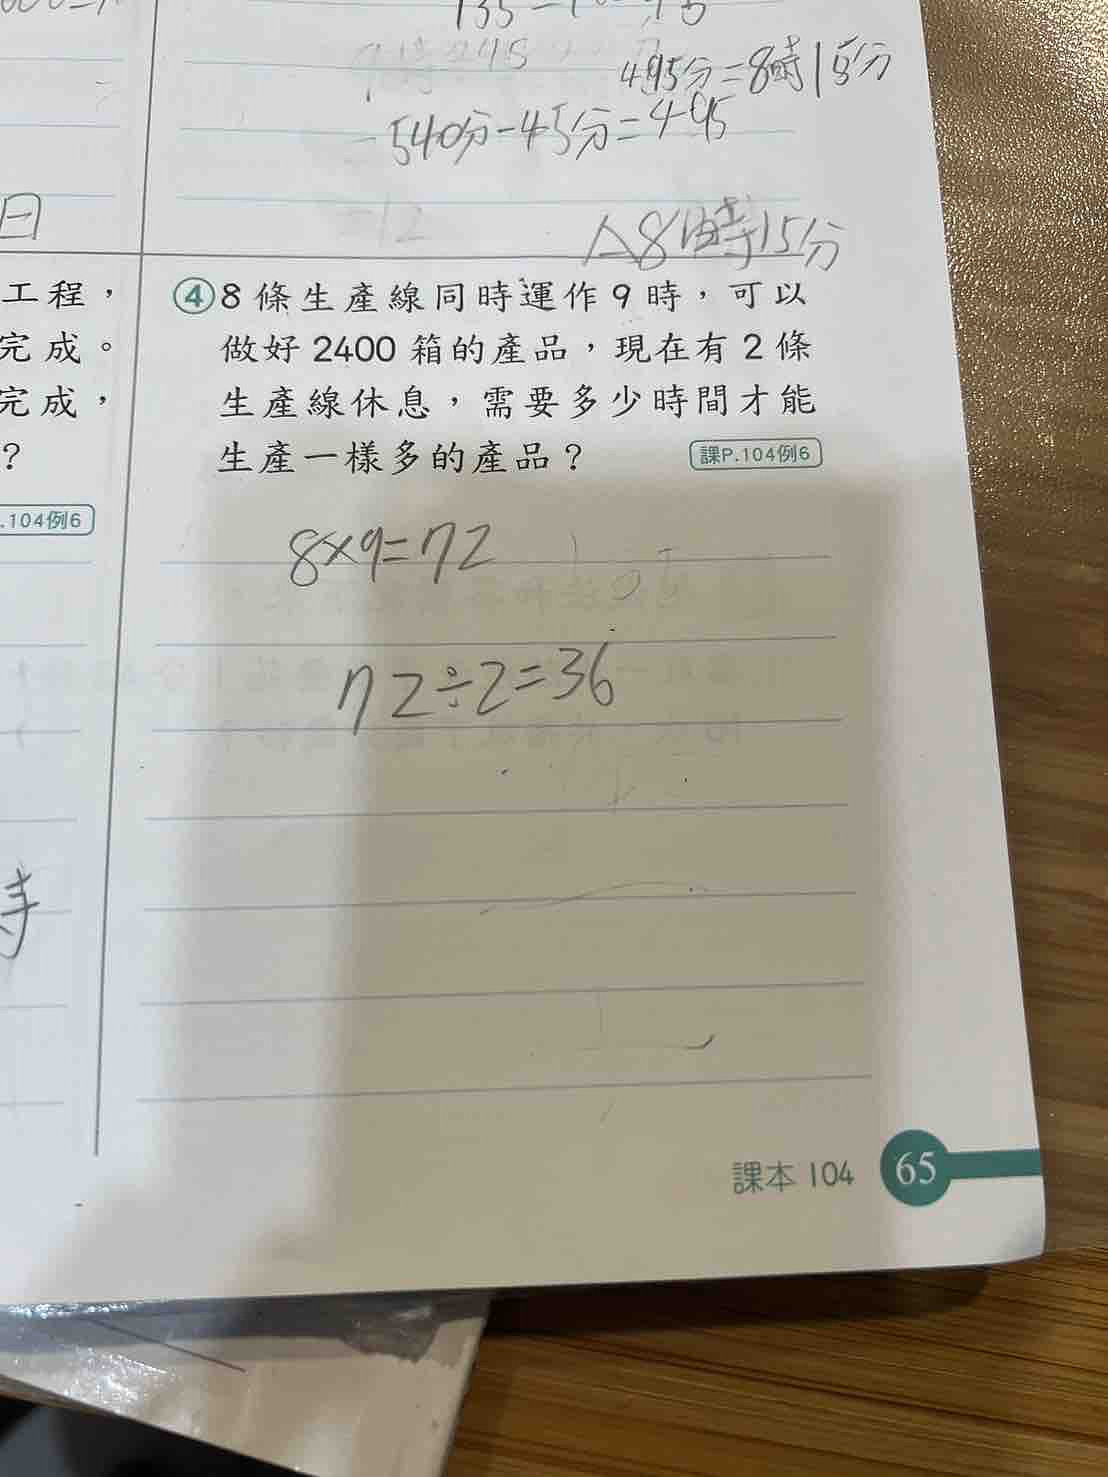 495分=8時15分
540分-45分=495
日
A8時15分
工程，
完成。
完成，
?
.104例6
④8條生產線同時運作9時，可以
做好2400箱的產品，現在有2條
生產線休息，需要多少時間才能
生產一樣多的產品？
課P.104例6
8×9=72
72÷2=36
課本104
65